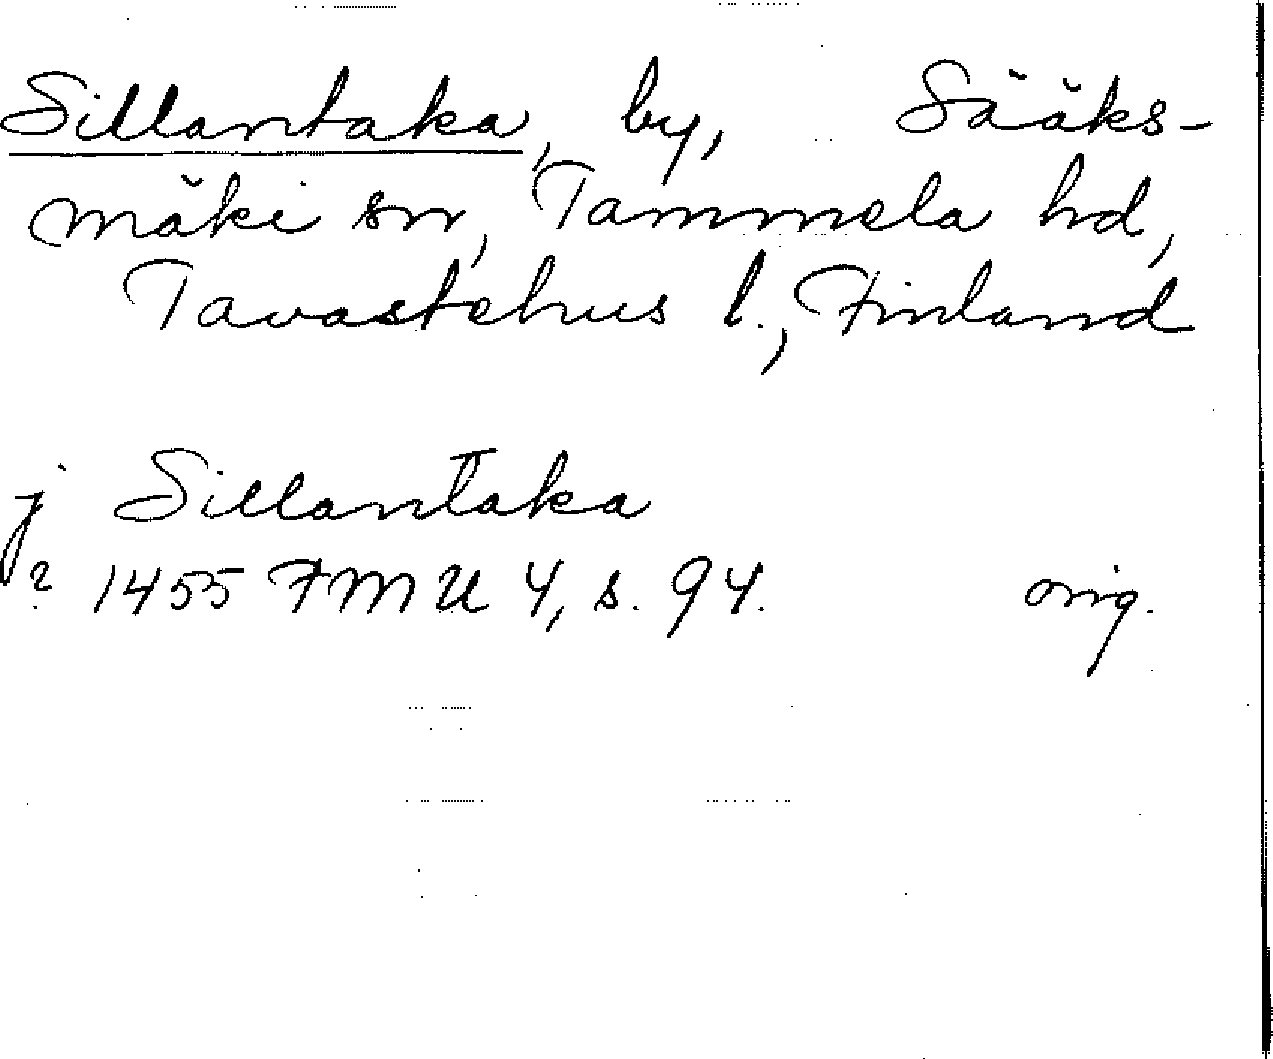 Sillantaka, by, Sääks-
mäki sn, Tammela hd,
Tavastehus l., Finland
j Sillantaka
? 1455 FMU 4, s. 94. orig.